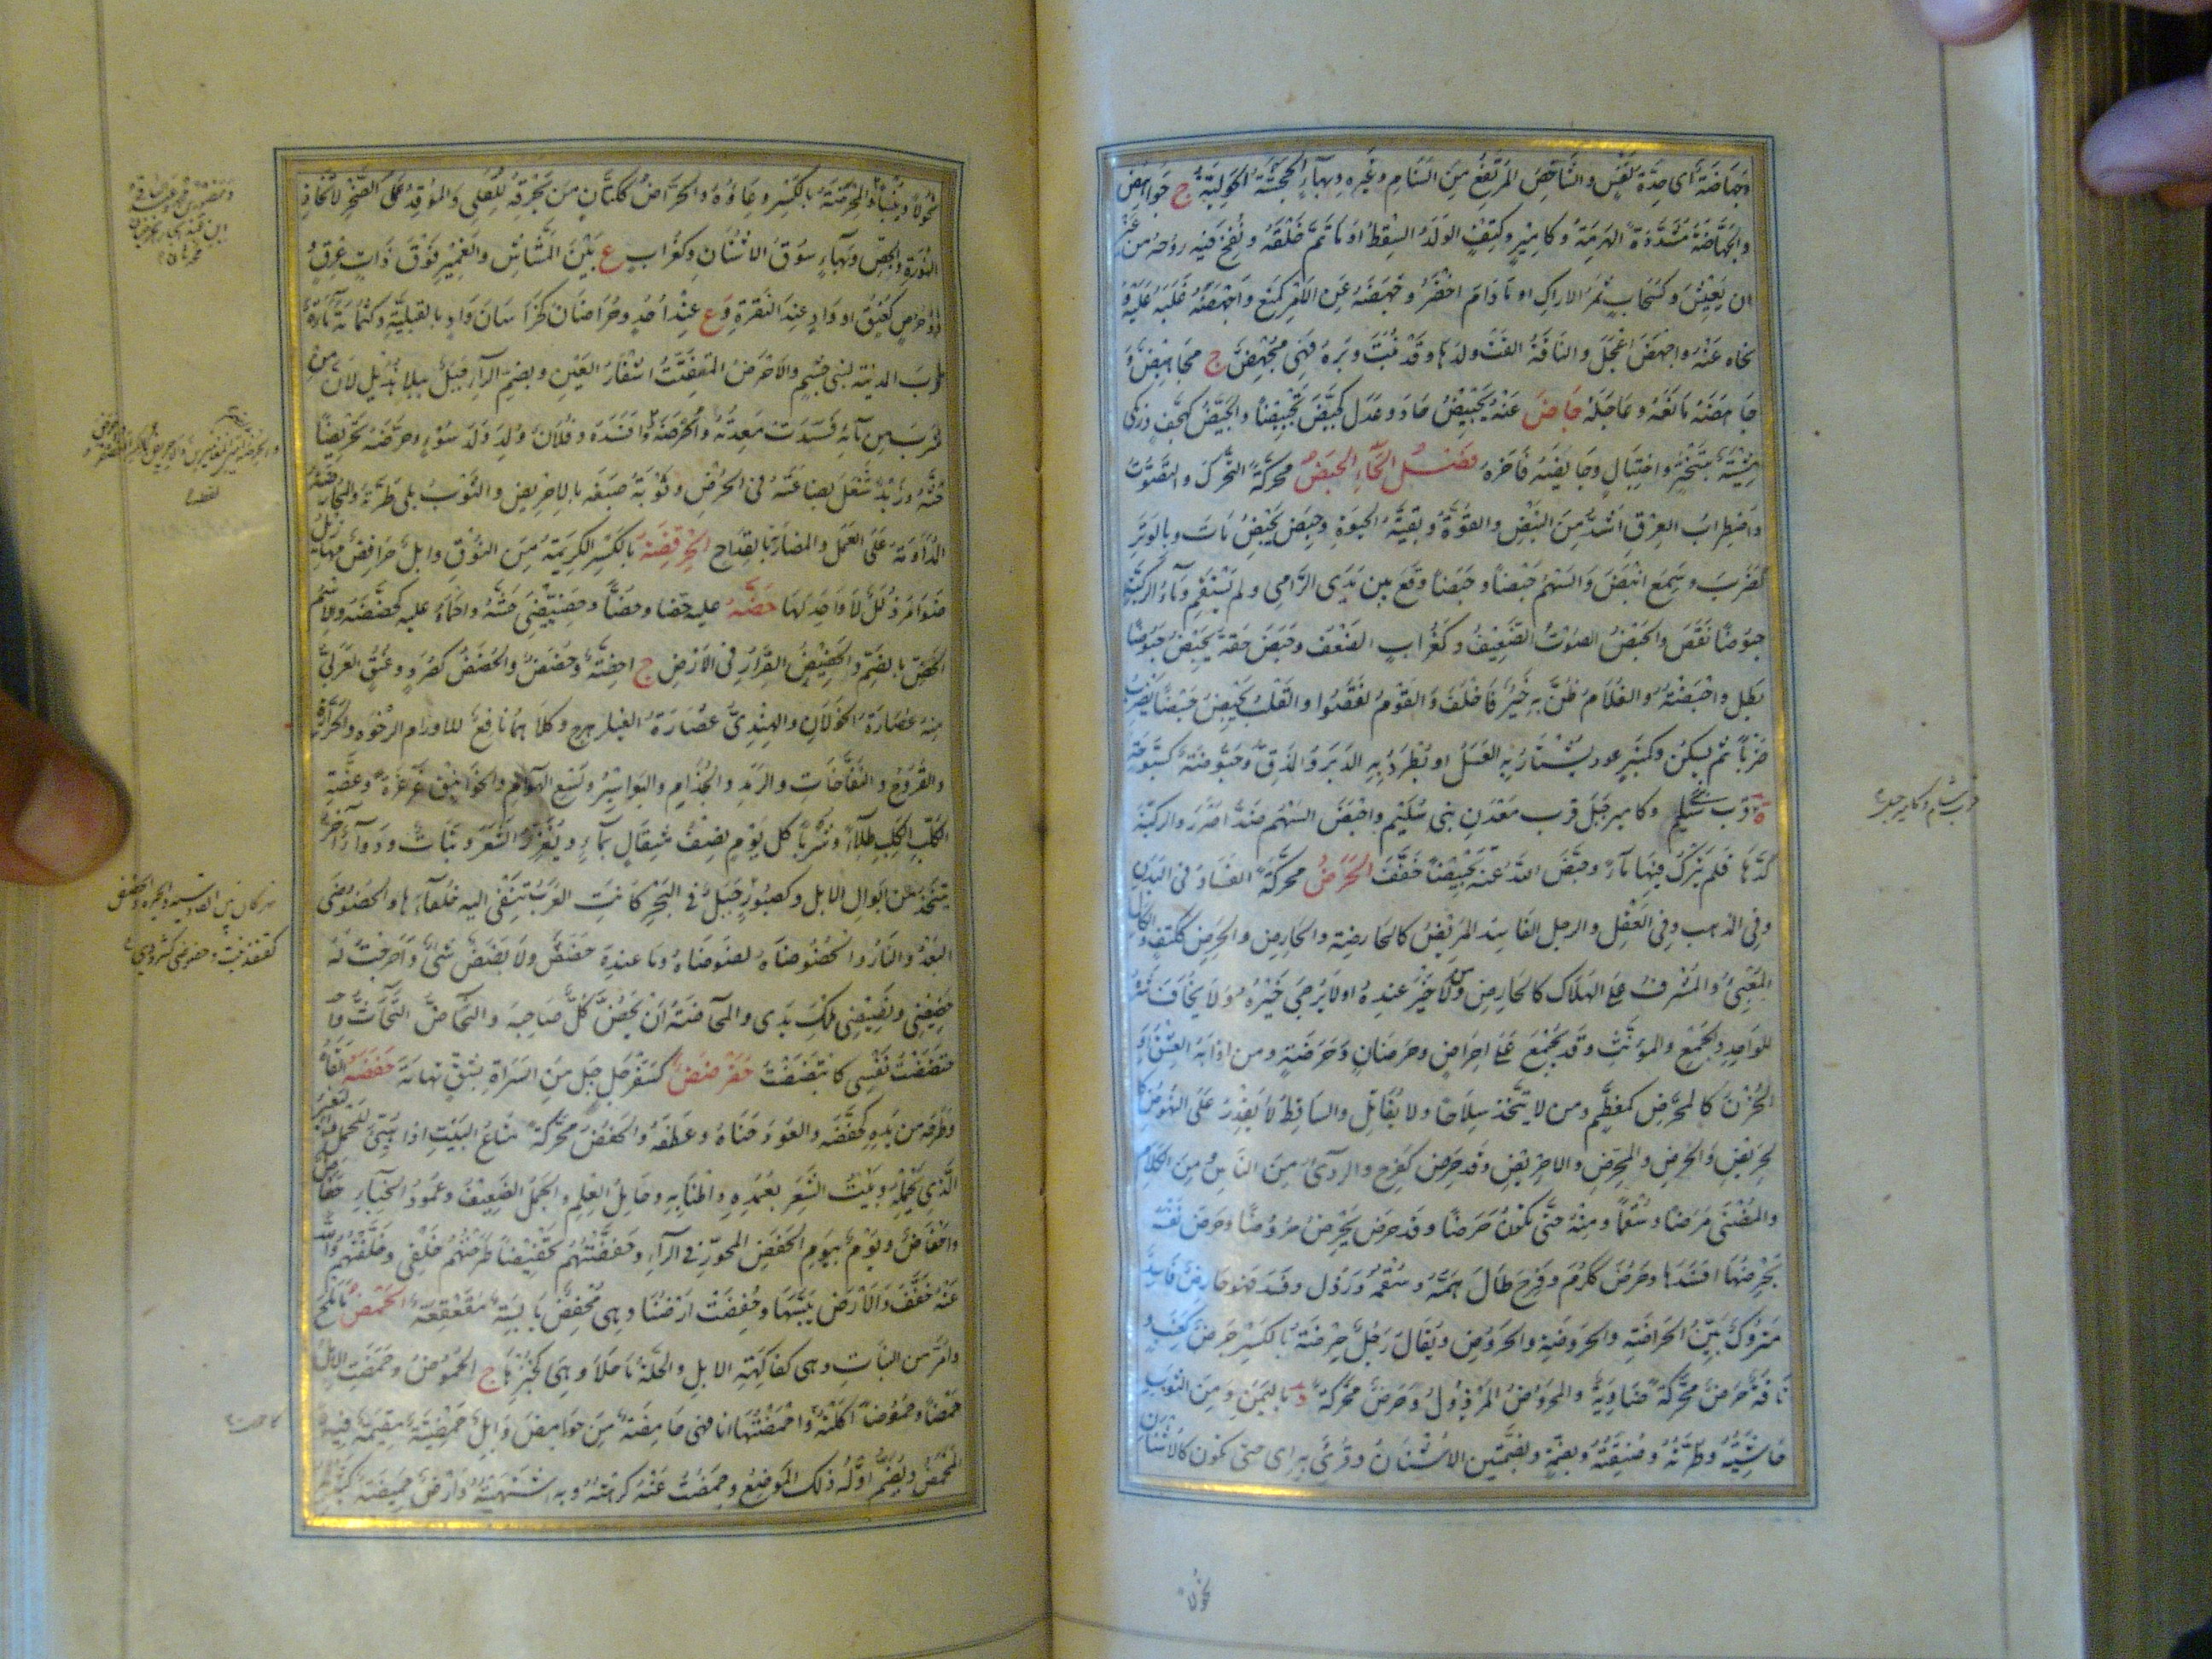 وجهاضة اى حدة نفس والشاخص المرتفع من السنام وغيره وبهاء الجحشة الحولية ج جواهض
والجهاضة مشددة الهرمة وكامير وكتف الولد السقط او ما تم خلقه ونفخ فيه روحه من غير
ان يعيش وكسحاب ثمر الاراك او ما دام اخضر وجهضه عن الامر كمنع واجهضه غلبه عليه و
نحاه عنه واجهض اعجل والناقة القت ولدها وقد نبت وبره فهى مجهض ج مجاهيض و
جاهضه مانعه وعاجله جاض عنه يجيض حاد وعدل كجيض تجييضا والجيض كهجف وزمكى
مشية بتبختر واختيال وجايضه فاخره فصل الحاء الحبض محركة التحرك والصوت
واضطراب العرق اشد من النبض والقوة وبقية الحيوة وحبض يحبض مات وبالوتر
كضرب وسمع انبض والسهم حبضا وحبضا وقع بين يدى الرامى ولم يستقم وماء الركية
حبوضا نقص والحبض الصوت الضعيف وكغراب الضعف وحبض حقه يحبض حبوضا
بطل واحبضته والغلام ظن به خير فاخلف والقوم نقصوا والقلب يحبض حبضا يضرب
ضربا ثم يسكن وكمنبر عود يشتار به العسل او يطرد به الدبر والمندف وحبوضة كسبوحة
ة قرب شبام وكامير جبل قرب معدن بنى سليم واحبض السهم ضد اصرد والركية
كدها فلم يترك فيها ماء وحبض الله عنه تحبيضا خفف الحرض محركة الفساد فى البدن
وفى المذهب وفى العقل والرجل الفاسد المريض كالحارضة والحارض والحرض ككتف والكال
المعيى والمشرف على الهلاك كالحارض ومن لا خير عنده او لا يرجى خيره ولا يخاف شره
للواحد والجمع والمؤنث وقد يجمع على احراض وحرضان وحرضة ومن اذابه العشق او
الحزن كالمحرض كمعظم ومن لا يتخذ سلاحا ولا يقاتل والساقط لا يقدر على النهوض كا
لحريض والحرض والمحرض والاحريض وقد حرض كفرح والردئ من الناس ومن الكلام
والمضنى مرضا وسقما ومنه حتى تكون حرضا وقد حرض يحرض حروضا وحرض نفسه
يحرضها افسدها وحرض ككرم وفرح طال همه وسقمه ورذل وفسد فهو حارض فاسد
متروك بين الحراضة والحروضة والحروض ويقال رجل حرضة بالكسر حرض كعنب و
ناقة حرض محركة ضاوية والمحروض المرذول وحرض محركة د باليمن ومن الثوب
حاشيته وطرته وصنفته وبضمة وبضمتين الاشنان وقرئ به اى حتى تكون كالاشنان
نحولا
قرب شبام وكامير جبل
نحولا ويبسا والمحرضة بالكسر وعاؤه والحراض ككتان من يحرقه للقلى والموقد على الصخر لاتخاذ
النورة والجص وبهاء سوق الاشنان وكغراب ع بين المشاش والغمير فوق ذات عرق
وذو حرض كعنق او واد عند النقرة وع عند احد وحراضان كخراسان واد بالقبلية وكثمامة ماءة
قرب المدينة لبنى جشم والاحرض المتفتت اشفار العين وبضم الراء جبل ببلاد هذيل لان من
شرب من مائه فسدت معدته واحرضه افسده وفلان ولد ولد سوء وحرضه تحريضا
حثه وزيد شغل بضاعته فى الحرض وثوبه صبغه بالاحريض والثوب بلى طرته والمحارضة
المداومة على العمل والمضاربة بالقداح الحرفضة بالكسر الكريمة من النوق وابل حرافض مهازيل
ضوامر ذلل لا واحد لها حضه عليه حضا وحضا وحضيضى حثه واحماه عليه كحضضه والاسم
الحض بالضم والحضيض القرار فى الارض ج احضة وحضض والحضض كصرد وعنق العربى
منه عصارة الخولان والهندى عصارة الفيلزهرج وكلاهما نافع للاورام الرخوة والخوارة
والقروح والنفاخات والرمد والجذام والبواسير ولسع الهوام والخوانيق غرغرة وعضة
الكلب الكلب طلاء وشربا كل يوم نصف مثقال بماء ويغزر الشعر ونبات ودواء آخر
يتخذ من ابوال الابل وكصبور جبل فى البحر كانت العرب تنفى اليه خلعاءها والحضوضى
البعد والنار والحضوضاة الضوضاة وما عنده حضض ولا بضض شئ واخرجت له
حضيضتى وبضيضتى ملك يدى والمحاضة ان يحض كل صاحبه والتحاض التحاث و
احتضضت نفسى كابتضضت حفرضض كسفرجل جبل من السراة بشق تهامة حفضه القاه
وطرحه من يده كحفضه والعود حناه وعطفه والحفض محركة متاع البيت اذا هيئ للحمل والبعير
الذى يحمله وبيت الشعر بعمده واطنابه وحامل العلم والجمل الضعيف وعمود الخباء حفاض
واحفاض ويوم بيوم الحفض المجور فى الراء وحفضتهم تحفيضا طرحتهم خلفى وخلفتهم والله
عنه خفف والارض يبسها وحفضت ارضنا وهى محفض يابسة مقعقعة الحمض ما ملح
وامر من النبات وهى كفاكهة الابل والخلة ما حلا وهى كخبزها ج الحموض وحمضت الابل
حمضا وحموضا اكلته واحمضتها انا فهى حامضة من حوامض وابل حمضية مقيمة فيه
المحمض ويضم اوله ذلك الموضع وحمضت عنه كرهته وبه اشتهيته وارض حميضة كثيرته